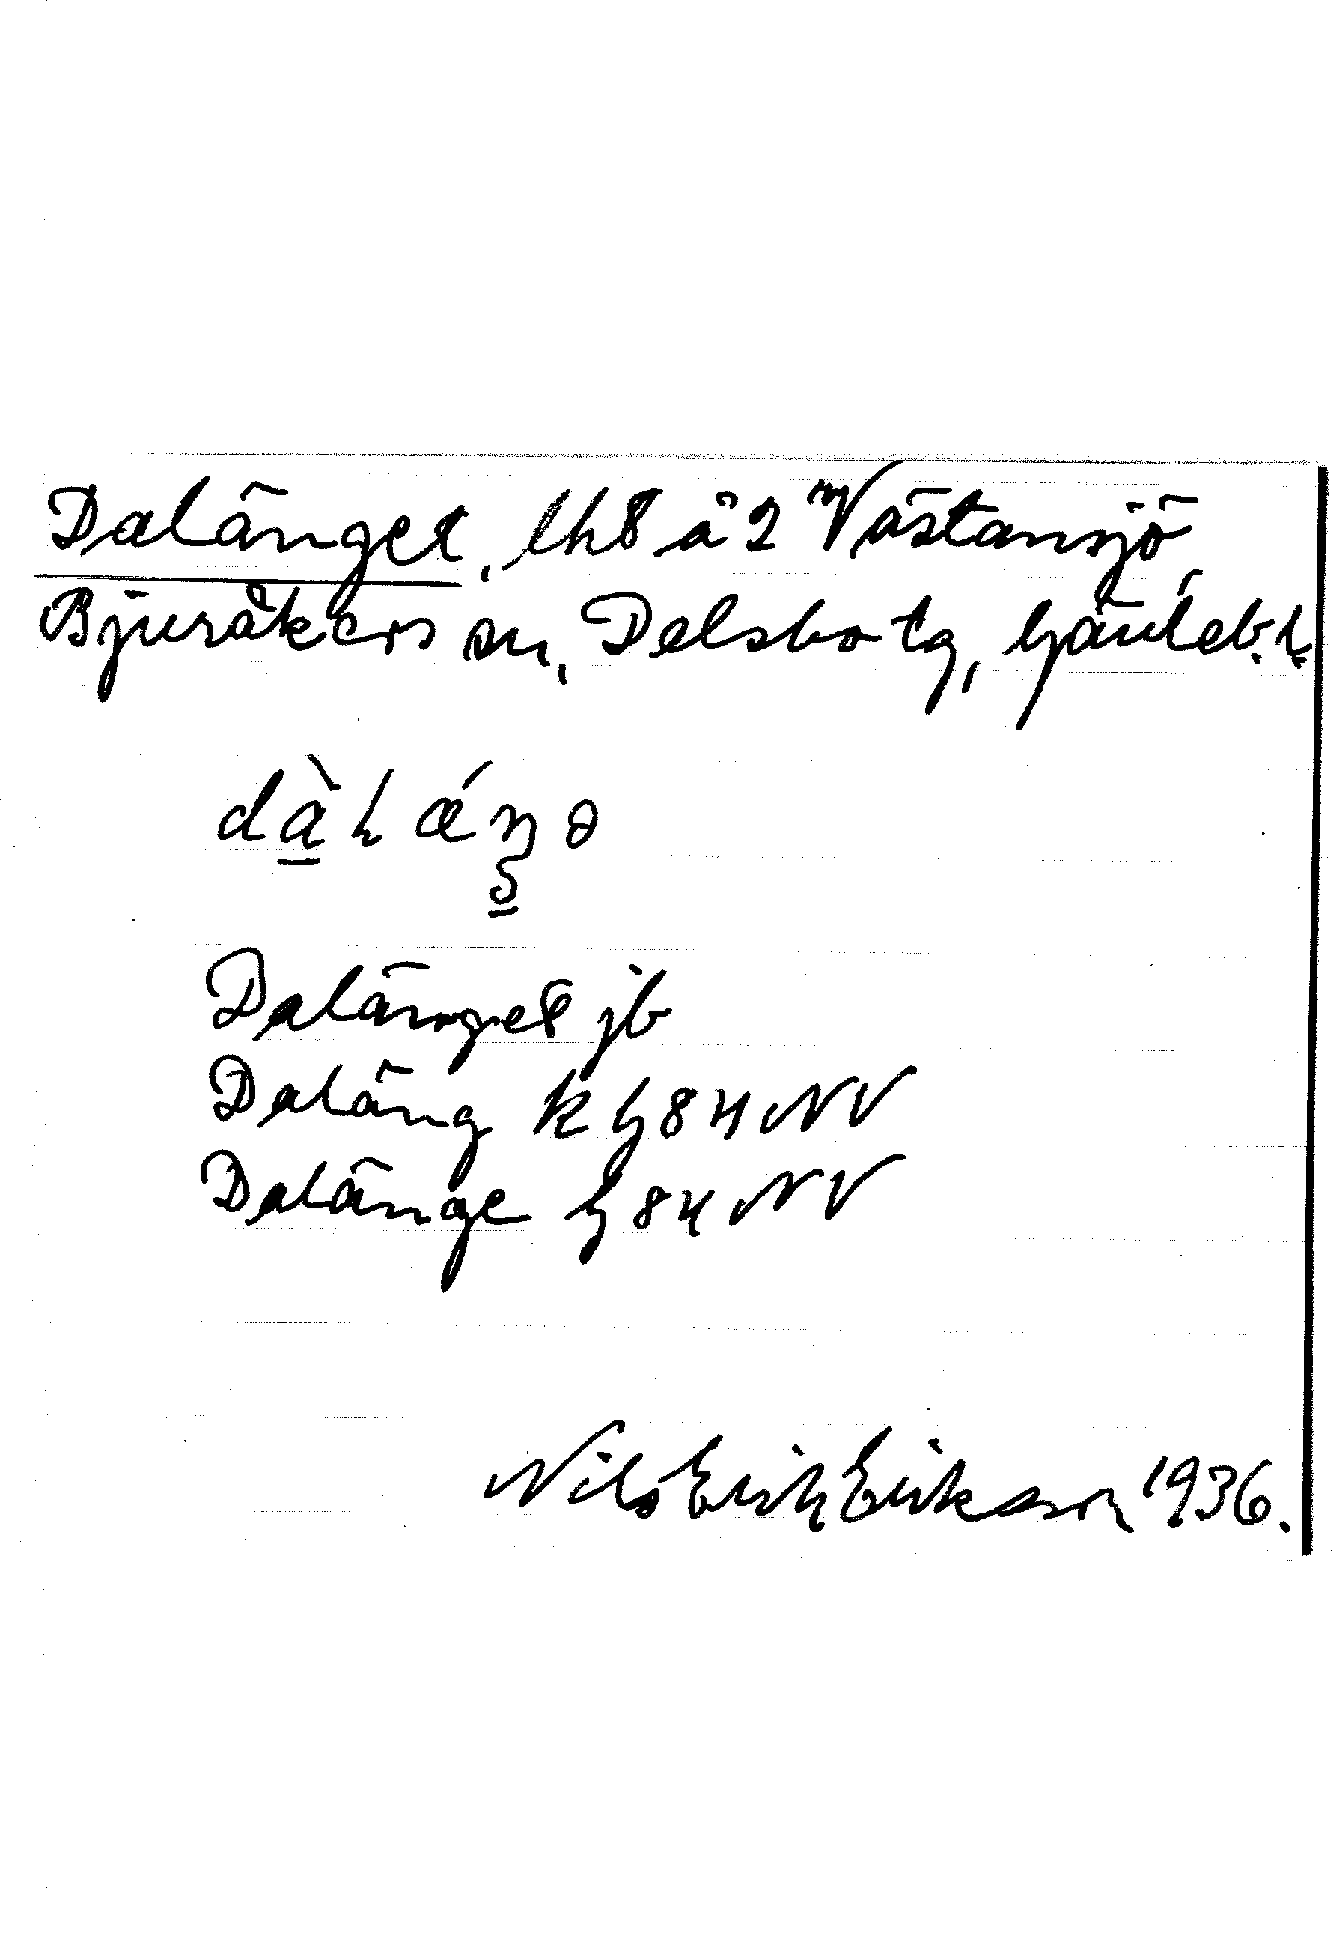 Dalänget, lh 8 å 2 Västansjö
Bjuråkers sn, Delsbo tg, Gävleb. l.
Dalänget jb
Daläng k h 84 NV
Dalänge h 84 NV
Nils Erik Eriksson 1936.